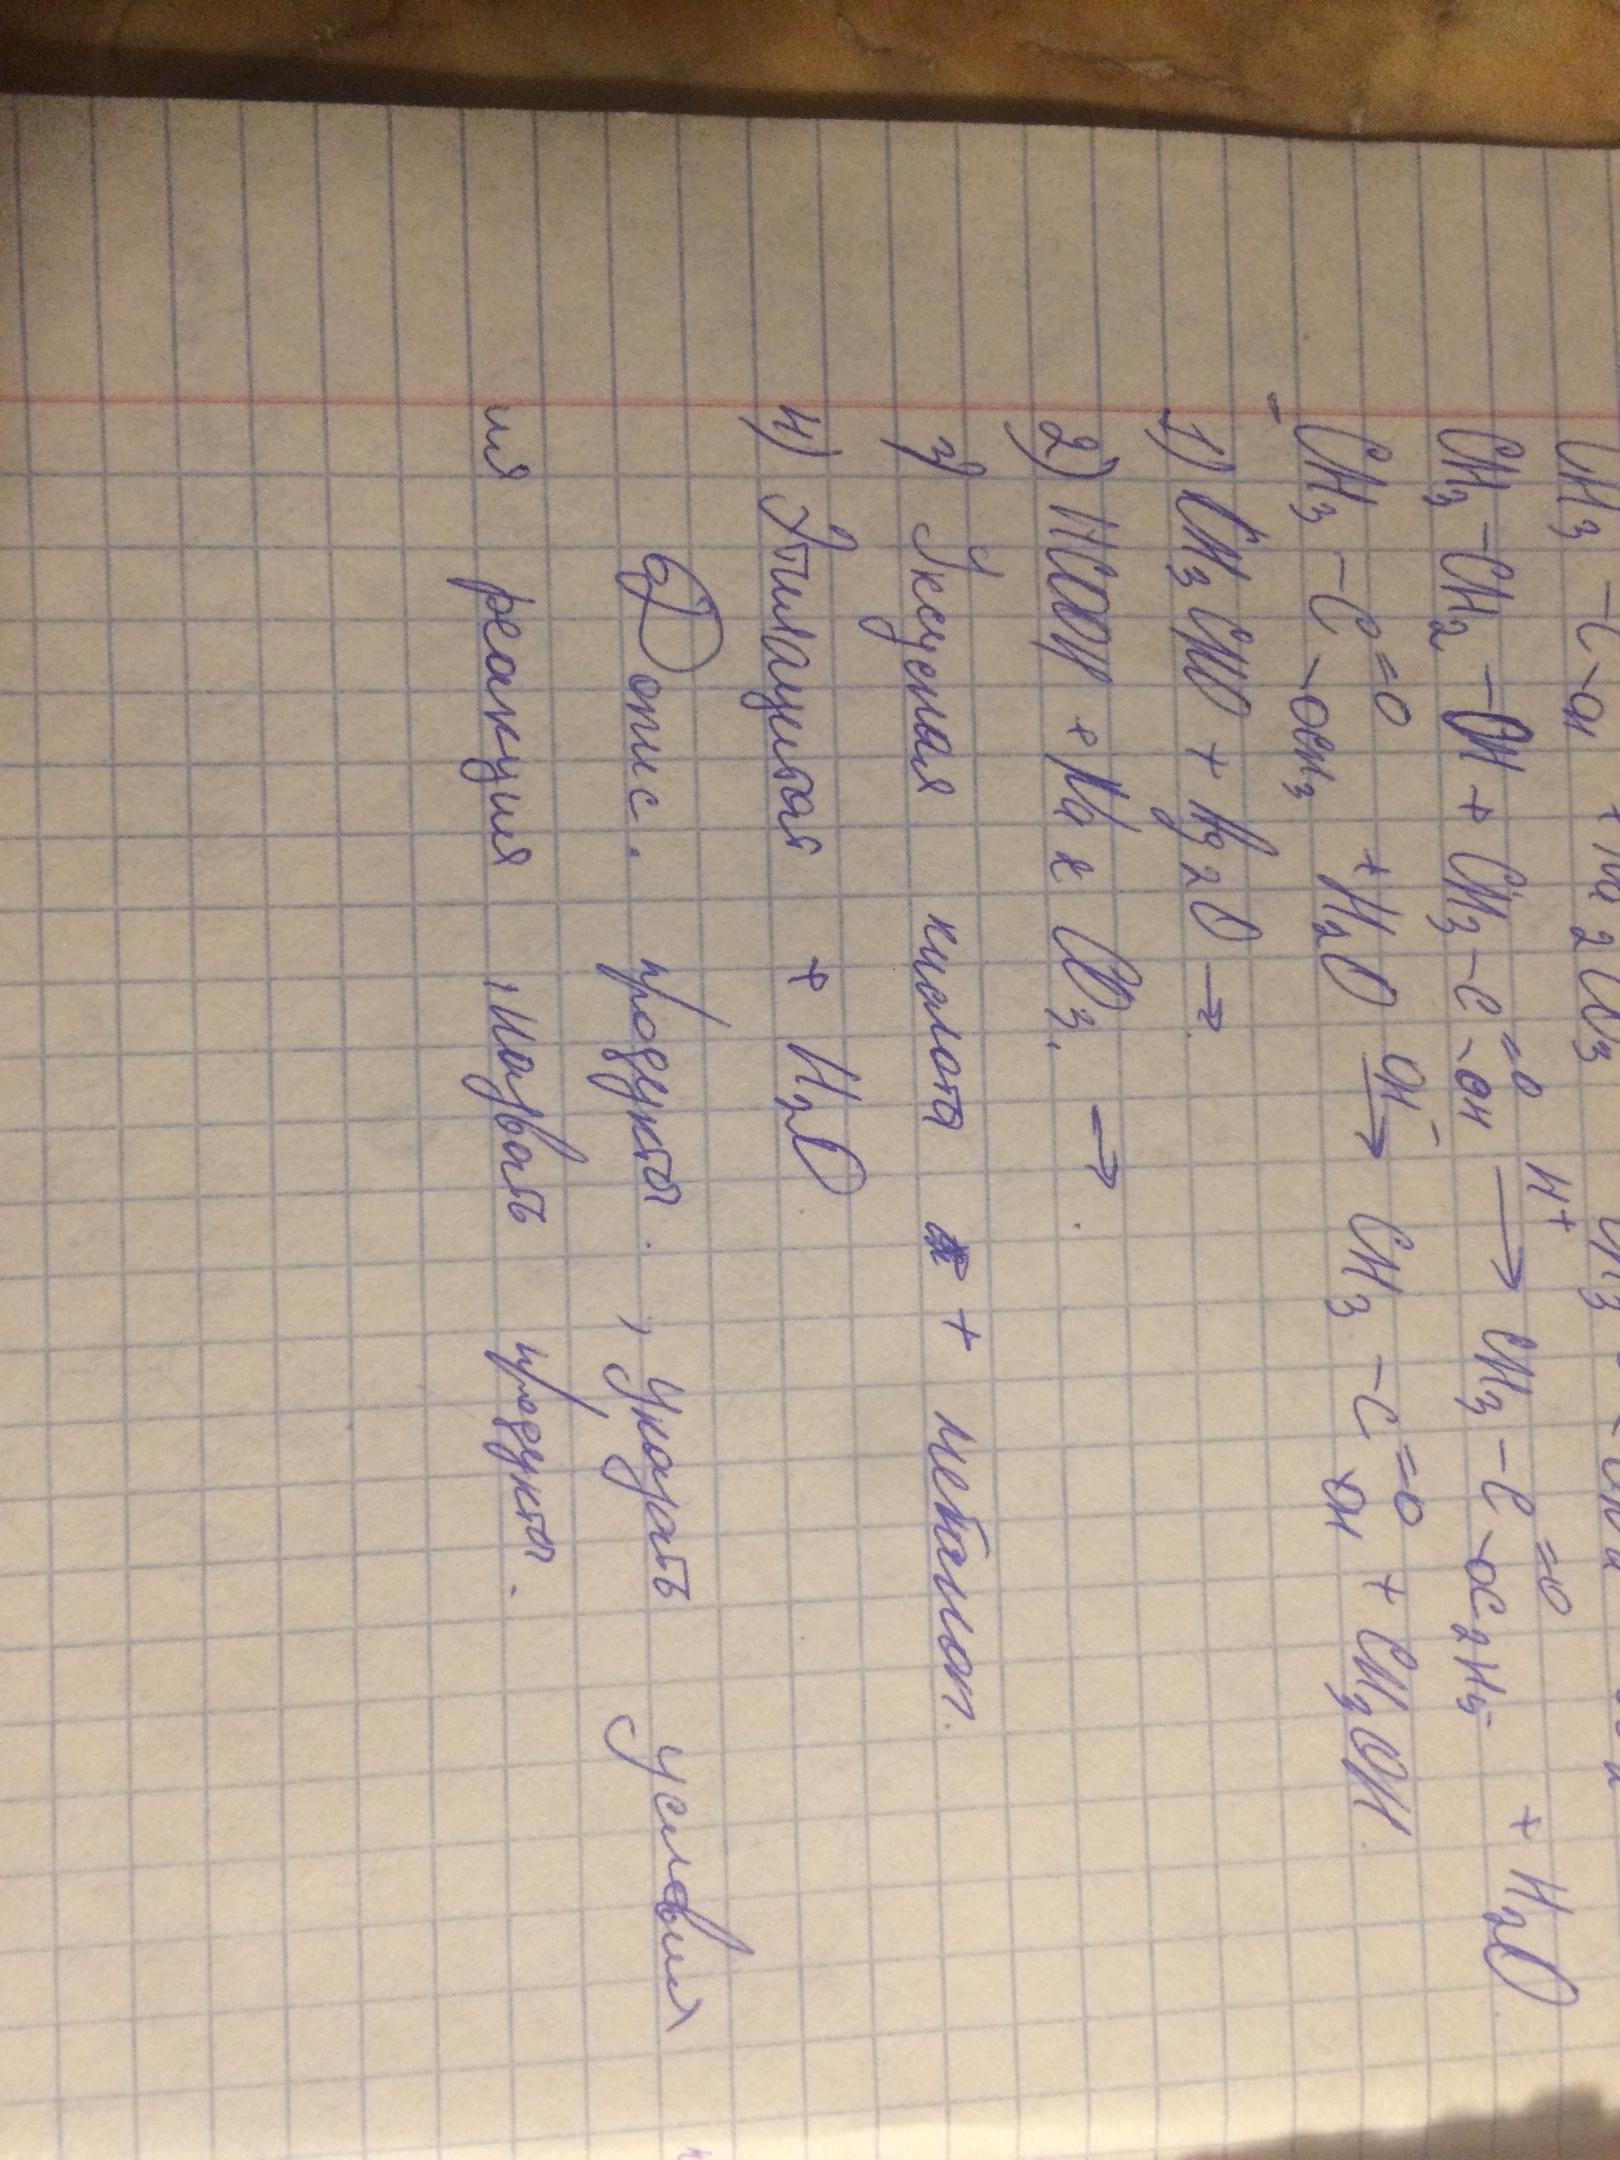 CH₃ - C - OH + Na₂CO₃
CH₃ - CH₂ - OH + CH₃ - C =O - OH H⁺ → CH₃ - C =O - OC₂H₅ + H₂O
- CH₃ - C =O - OCH₃ + H₂O OH⁻ → CH₃ - C =O OH + CH₃OH.
1) CH₃CHO + Ag₂O →
2) HCOOH + Na₂CO₃. →
3) Уксусная кислота + метанол.
4) Этилацитат + H₂O
б) Допис. продукты. , указать условия
ия реакция , назвать продукты.